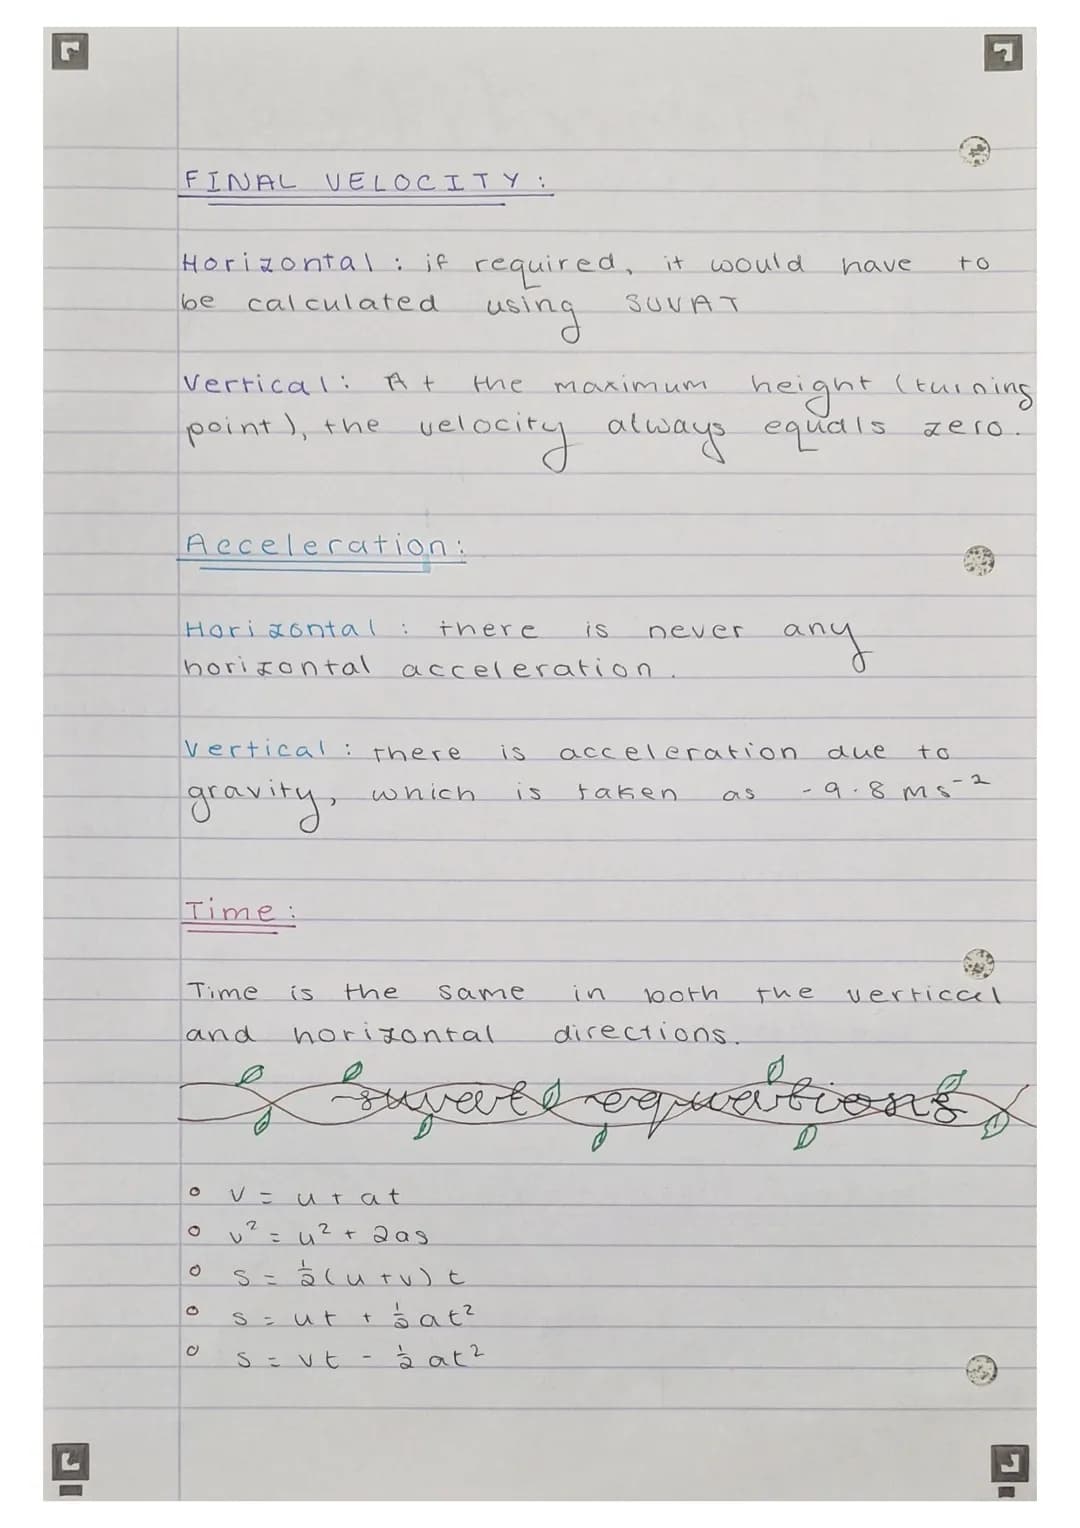 FINAL VELOCITY:
Horizontal: if required, it would have to
be calculated using SUVAT
Vertical: At the maximum height (turning
point), the velocity always equals zero.
Acceleration:
Horizontal: there is never any
horizontal acceleration.
Vertical: there is acceleration due to
gravity, which is taken as -9.8 ms⁻²
Time:
Time is the same in both the vertical
and horizontal directions.
suvat equations
• v = u + at
• v² = u² + 2as
• s = ½(u+v)t
• s = ut + ½at²
• s = vt - ½at²